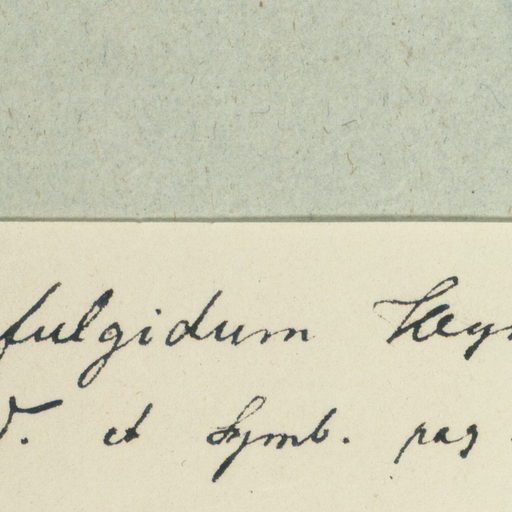 fulgidum Hey
et Symb. pag.